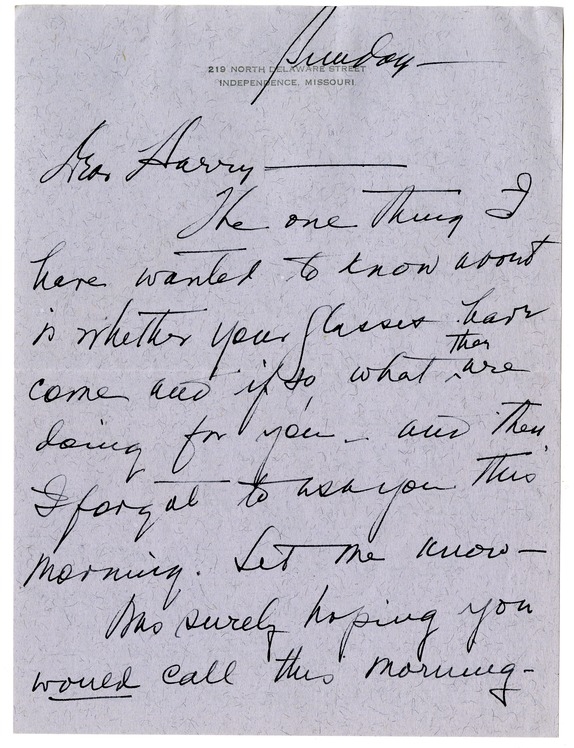 Sunday—
219 NORTH DELAWARE STREET
INDEPENDENCE, MISSOURI
Dear Harry—
The one thing I
have wanted to know about
is whether your glasses have
come and if so, what they are
doing for you – and then
I forgot to ask you this
morning. Let me know—
Was surely hoping you
would call this morning-